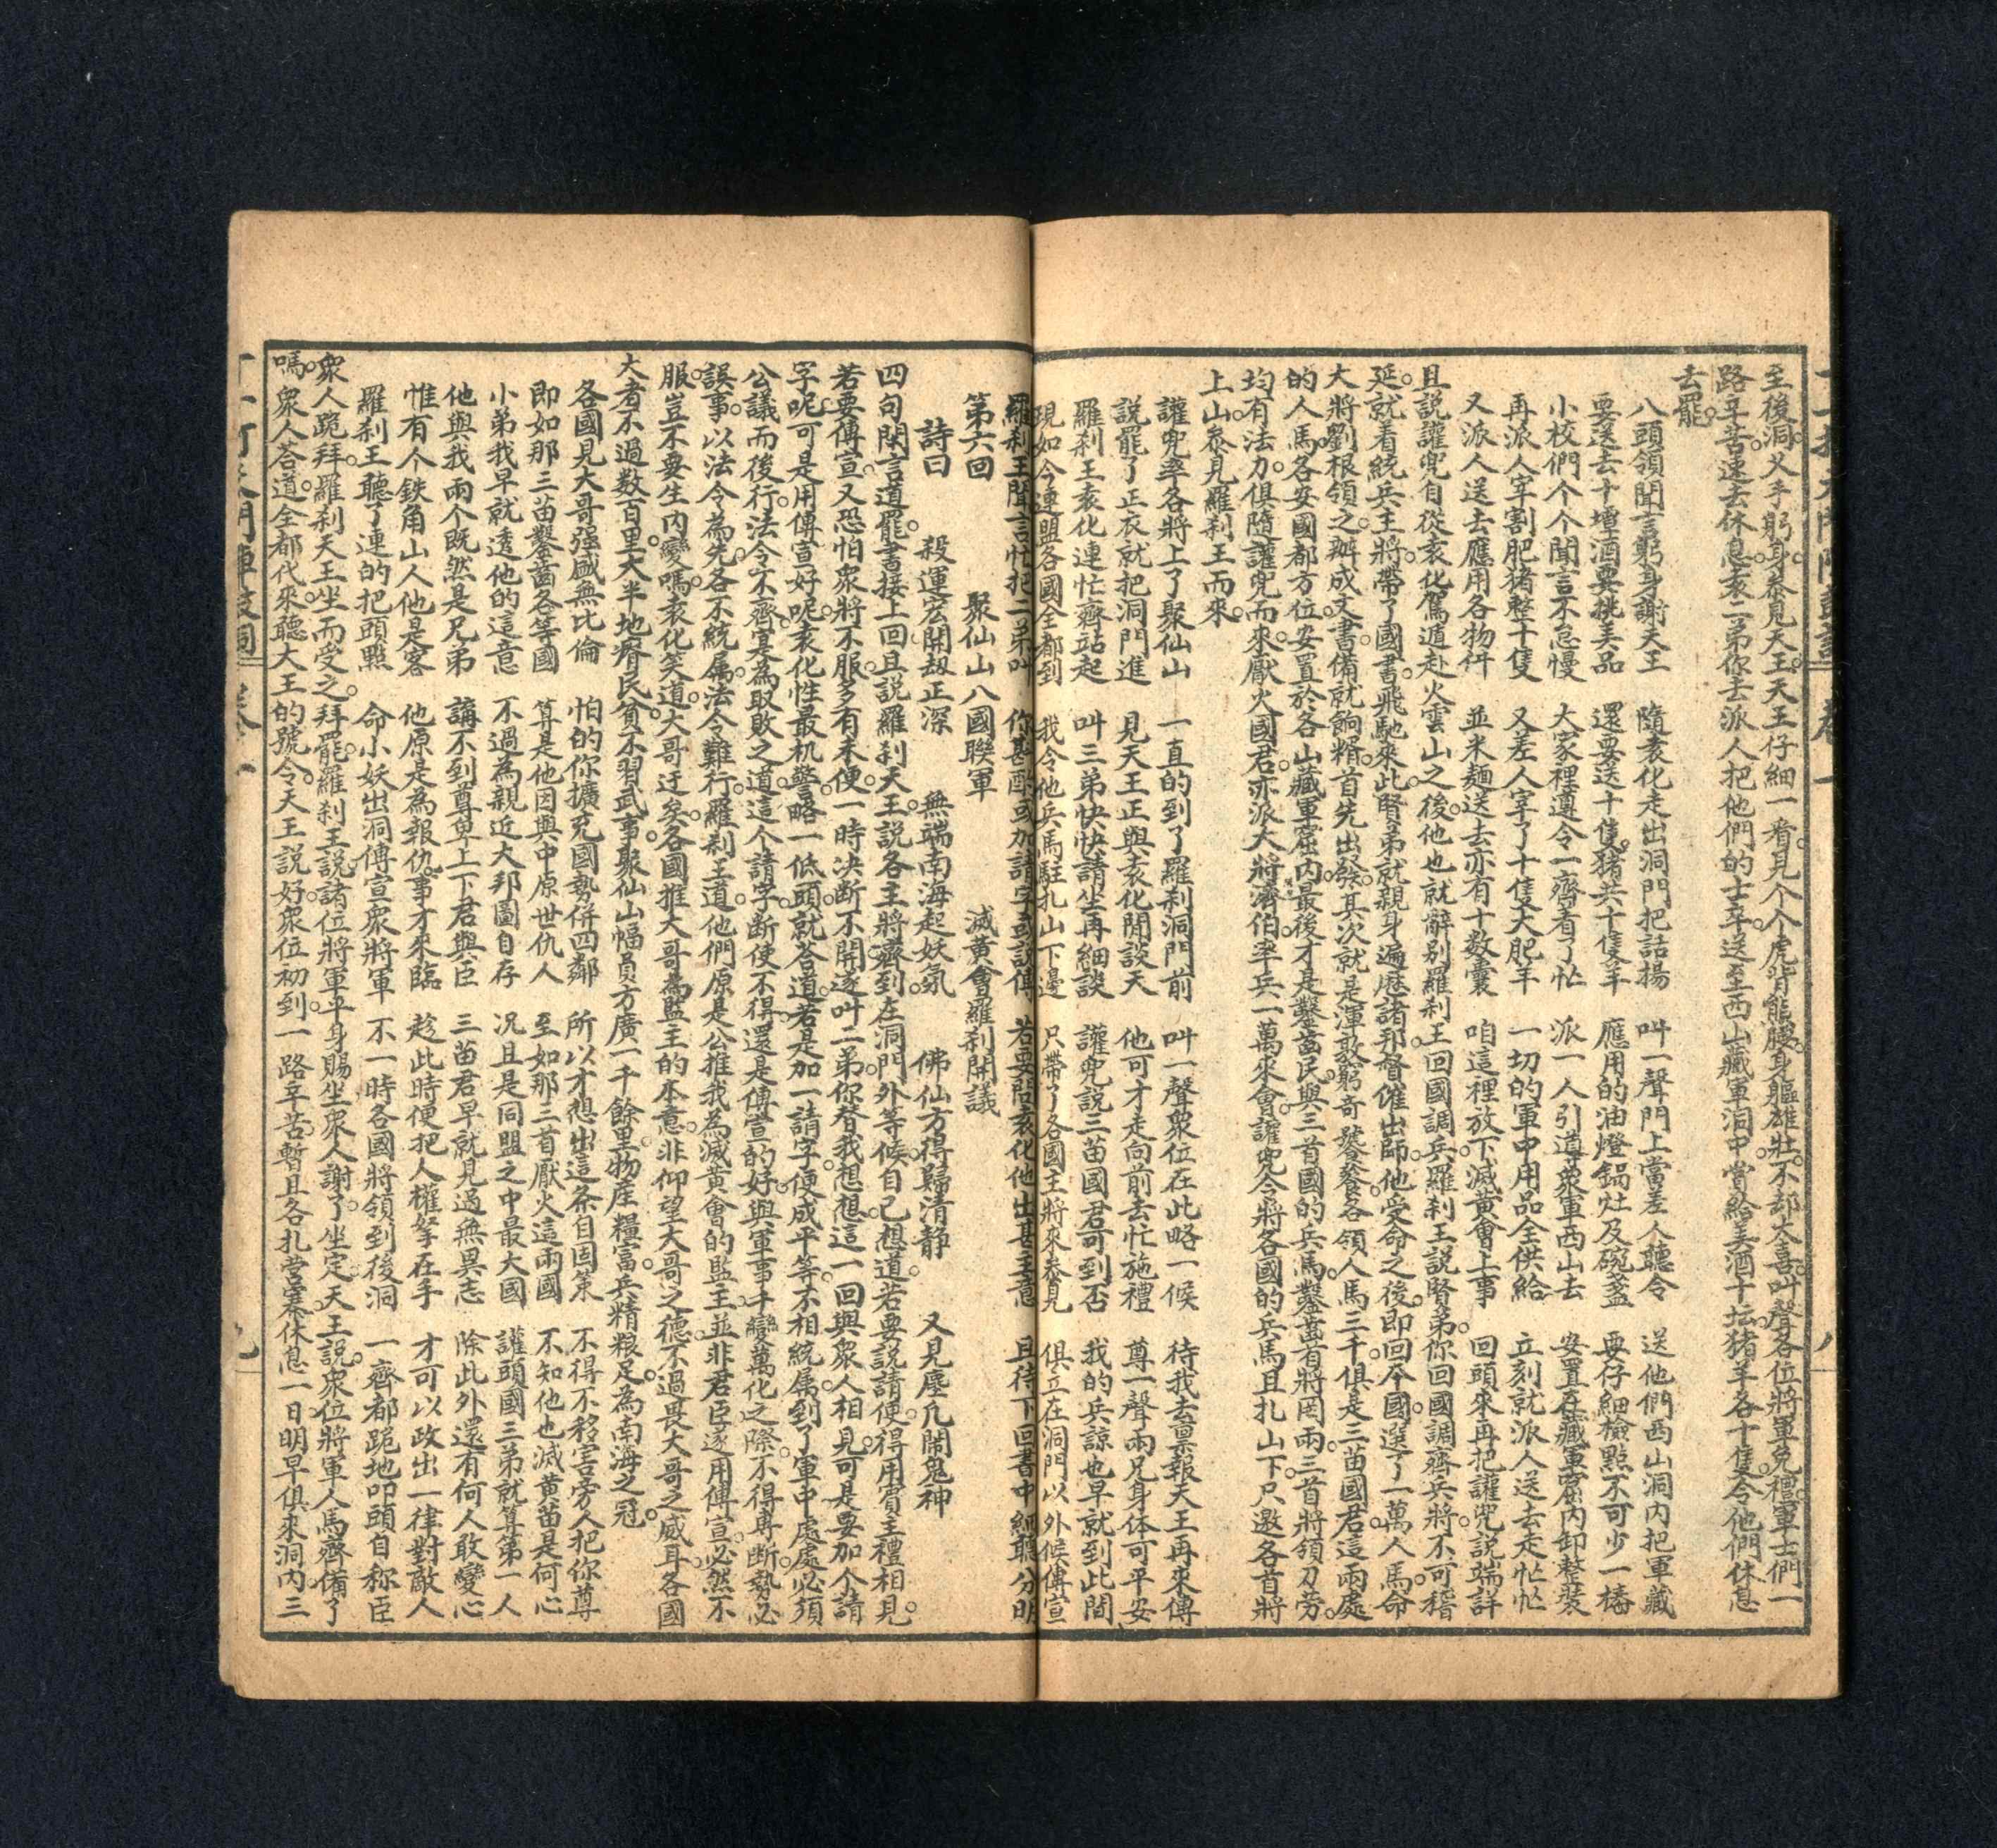 至後洞。乂手躬身叅見天王。天王仔細一看。見个个虎背熊腰。身軀雄壯。不卻大喜。叫聲各位將軍免禮。軍士們一
路辛苦。速去休息。亥二弟你去派人把他們的士卒。送至西山藏軍洞中。賞給美酒十坛。猪羊各十隻。令他們休息
去罷。
八頭領聞言躬身謝天王　隨亥化走出洞門把話揚　叫一聲門上當差人聽令　送他們西山洞內把軍藏
要送去十壜酒要挑美品　還要送十隻猪共十隻羊　應用的油燈鍋灶及碗盞　要仔細檢點不可少一樁
小校們个个聞言不怠慢　大家裡遵令一齊着了忙　派一人引導衆軍西山去　安置在藏軍窟內卸整裝
再派人宰割肥猪整十隻　又差人宰了十隻大肥羊　一切的軍中用品全供給　立刻就派人送去走忙忙
又派人送去應用各物件　並米麵送去亦有十數囊　咱這裡放下滅黃會上事　回頭來再把讙兜說端詳
且說讙兜自從亥化駕遁赴火雲山之後。他也就辭别羅刹王回國調兵。羅刹王説賢弟。你回國調齊兵將。不可稽
延。就看統兵主將。帶了國書。飛馳來此。賢弟就親身遍歷諸邦。督催出師。他受命之後。即回本國。選了一萬人馬。命
大將劉根領之。辦成文書。備就餉糈。首先出發。其次就是渾敦窮奇饕餮。各領人馬三千。俱是三苗國君。這兩處
的人馬。各安國都方位。安置於各山藏軍窟內。最後才是鑿齒民。與三首國的兵馬。鑿齒者將罔兩。三首將領刀旁。
均有法力。俱隨讙兜而來。厭火國君。亦派大將濟伯。率兵一萬來會。讙兜令將各國的兵馬。且扎山下。只邀各首將
上山。叅見羅刹王而來。
讙兜率各將上了聚仙山　一直的到了羅刹洞門前　叫一聲衆位在此略一候　待我去禀報天王再來傳
說罷了正衣就把洞門進　見天王正與亥化閒談天　他可才走向前去忙施禮　尊一聲兩兄身体可平安
羅刹王亥化連忙齊站起　叫三弟快快請坐再細談　讙兜說三苗國君可到否　我的兵諒也早就到此間
現如今連盟各國全都到　我令他兵馬駐扎山下邊　只帶了各國主將來叅見　俱立在洞門以外候傳宣
羅刹王聞言忙把二弟叫　你斟酌或加請字或說傳　若要問亥化他出甚主意　且待下回書中細聽分明
第六回　聚仙山八國聯軍　滅黃會羅刹開議
詩曰　殺運宏開刼正深　無端南海起妖氛　佛仙方得歸清静　又見塵凡鬧鬼神
四句閑言道罷。書接上回。且說羅刹天王。説各主將齊到。在洞門外等候。自己想道。若要說請。便得用賓主禮相見。
若要傳宣。又恐怕衆將不服。多有未便。一時决斷不開。遂叫二弟。你替我想想。這一回與衆人相見。可是要加个請
字呢。可是用傳宣好呢。亥化性最机警。略一低頭。就荅道。若是加一請字。便成平等。不相統属。到了軍中。處處必須
公議而後行。法令不齊。寔為取敗之道。這个請字。斷使不得。還是傳宣的好。與軍事千變萬化之際。不得專斷。勢必
誤事。以法令為先。各不統属。法令難行。羅刹王道。他們原是公推我為滅黃會的監主。並非君臣。遂用傳宣。必然不
服。豈不要生內變嗎。亥化笑道。大哥迂矣。各國推大哥為監主的本意。非仰望大哥之德。不過畏大哥之威耳。各國
大者不過数百里。大半地瘠民貧。不習武事。聚仙山幅員方廣一千餘里。物產糧富。兵精粮足。為南海之冠。
各國見大哥强盛無比倫　怕的你擴充國勢併四鄰　所以才想出這条自固策　不得不移害旁人把你尊
即如那三苗鑿齒各等國　算是他因與中原世仇人　至如那三首厭火這兩國　不知他也滅黃苗是何心
小弟我早就透他的這意　不過為親近大邦圖自存　况且是同盟之中最大國　讙頭國三弟就算第一人
他與我兩个既然是兄弟　講不到尊卑上下君與臣　三苗君早就見過無異志　除此外還有何人敢變心
惟有个鉄角山人他是客　他原是為報仇事才來臨　趁此時便把人權拏在手　才可以政出一律對敵人
羅刹王聽了連的把頭點　命小妖出洞傳宣衆將軍　不一時各國將領到後洞　一齊都跪地叩頭自称臣
衆人跪拜。羅刹天王坐而受之。拜罷。羅刹王説諸位將軍平身賜坐。衆人謝了坐定。天王說。衆位將軍人馬齊備了
嗎。衆人荅道。全都代來。聽大王的號令。天王説好。衆位初到。一路辛苦。暫且各扎營寨休息一日。明早俱來洞內三